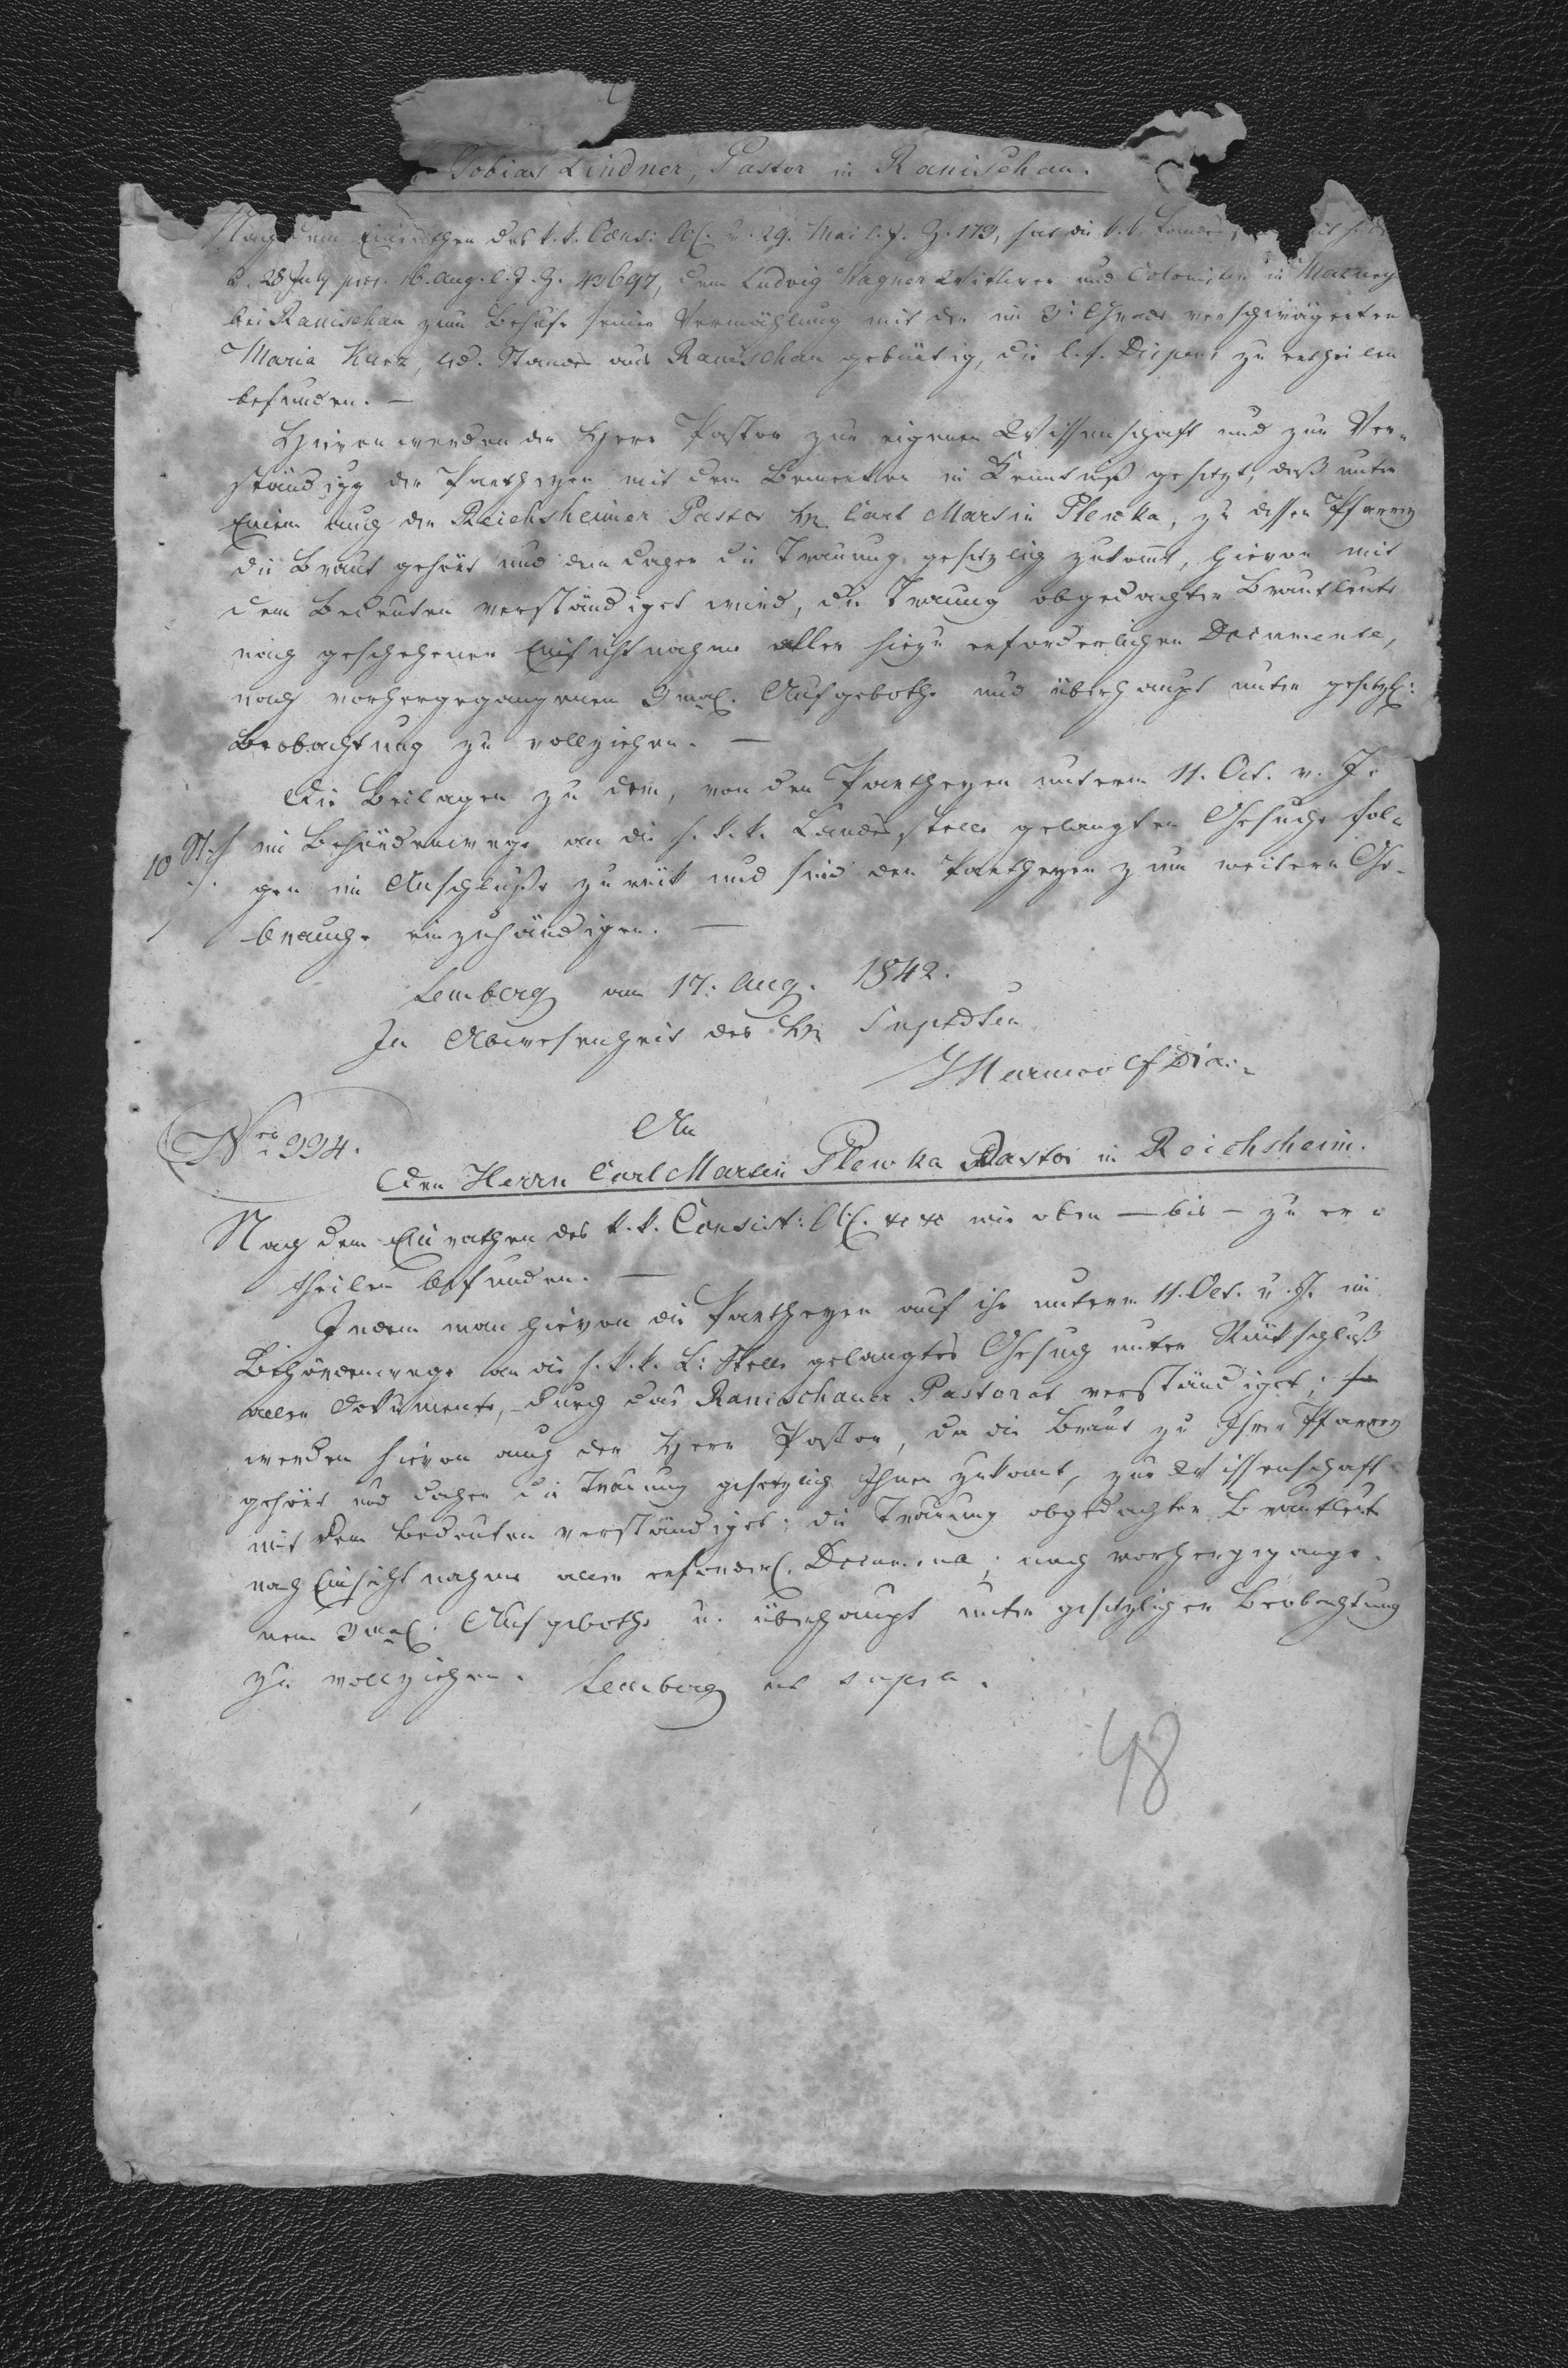 Tobias Lindner, Pastor in Ranischau.
Nach dem Einrathen des k.k. Cons: A.C. v. 29. Mai l.J. Z. 173, hat die k.k. Landes
v. 28 July pres. 16. Aug. l.J. Z. 43697, dem Ludwig Wagner Wittwer und Colonisten in Mazury
bei Ranischau zum Behufe seiner Vermählung mit der im 3: Grade verschwägerten
Maria Kurz, led. Standes aus Ranischau gebürtig, die l.f. Dispens zu ertheilen
befunden. —
Hievon werden der Herr Pastor zur eigenen Wissenschaft und zur Ver-
ständigg der Partheyen mit dem Bemerken in Kenntniß gesetzt, daß unter
Einem auch der Reichsheimer Pastor H. Carl Martin Plewka, zu dessen Pfarrey
die Braut gehört und dem daher die Trauung gesetzlich zukomt, hievon mit
dem Bedeuten verständiget wird, die Trauung obgedachter Brautleute
nach geschehener Einsichtnahme aller hiezu erforderlichen Documente,
nach vorhergegangenem 3mal. Aufgebothe und überhaupt unter gesetzl:
Beobachtung zu vollziehen. —
Die Beilagen zu dem, von den Partheyen unterm 11. Oct. v. J.
10 St. im Behördenwege an die h.k.k. Landesstelle gelangten Gesuche fol-
gen im Anschluße zurück und sind den Partheyen zum weitern Ge-
brauche einzuhändigen. —
Lemberg am 17. Aug. 1842.
In Abwesenheit des H. Suptdten
Nro 994.
An
Den Herrn Carl Martin Plewka Pastor in Reichsheim.
Nach dem Einrathen des k.k. Consist: A.C. &c &c wie oben — bis — zu er-
theilen befunden. —
Indem man hievon die Partheyen auf ihr unterm 11. Oct. v. J. im
Behördenwege an die h.k.k. L: Stelle gelangtes Gesuch unter Rückschluß
aller Dokumente, durch das Ranischauer Pastorat verständiget; so
werden hievon auch der Herr Pastor, da die Braut zu Ihrer Pfarrey
gehört und daher die Trauung gesetzlich Ihnen zukomt, zur Wissenschaft
mit dem Bedeuten verständiget: die Trauung obgedachter Brautleute
nach Einsichtnahme aller erforderl. Documente, nach vorhergegange-
nem 3mal. Aufgebothe u. überhaupt unter gesetzlicher Beobachtung
zu vollziehen. Lemberg ut supra.
48